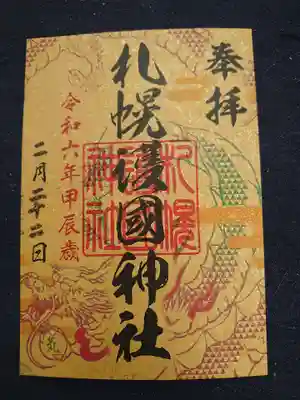 奉拝
札幌護國神社
令和六年甲辰歳
二月二十二日
札幌護國神社